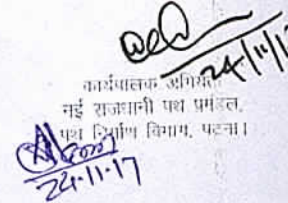 24/11/17
कार्यपालक अभियंता
नई राजधानी पथ प्रमंडल,
पथ निर्माण विभाग, पटना।
24.11.17